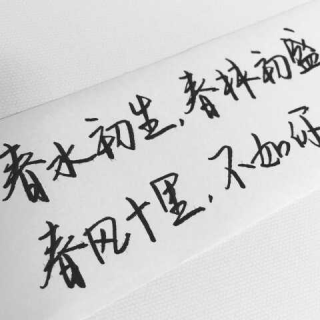 春水初生，春林初盛
春风十里，不如你